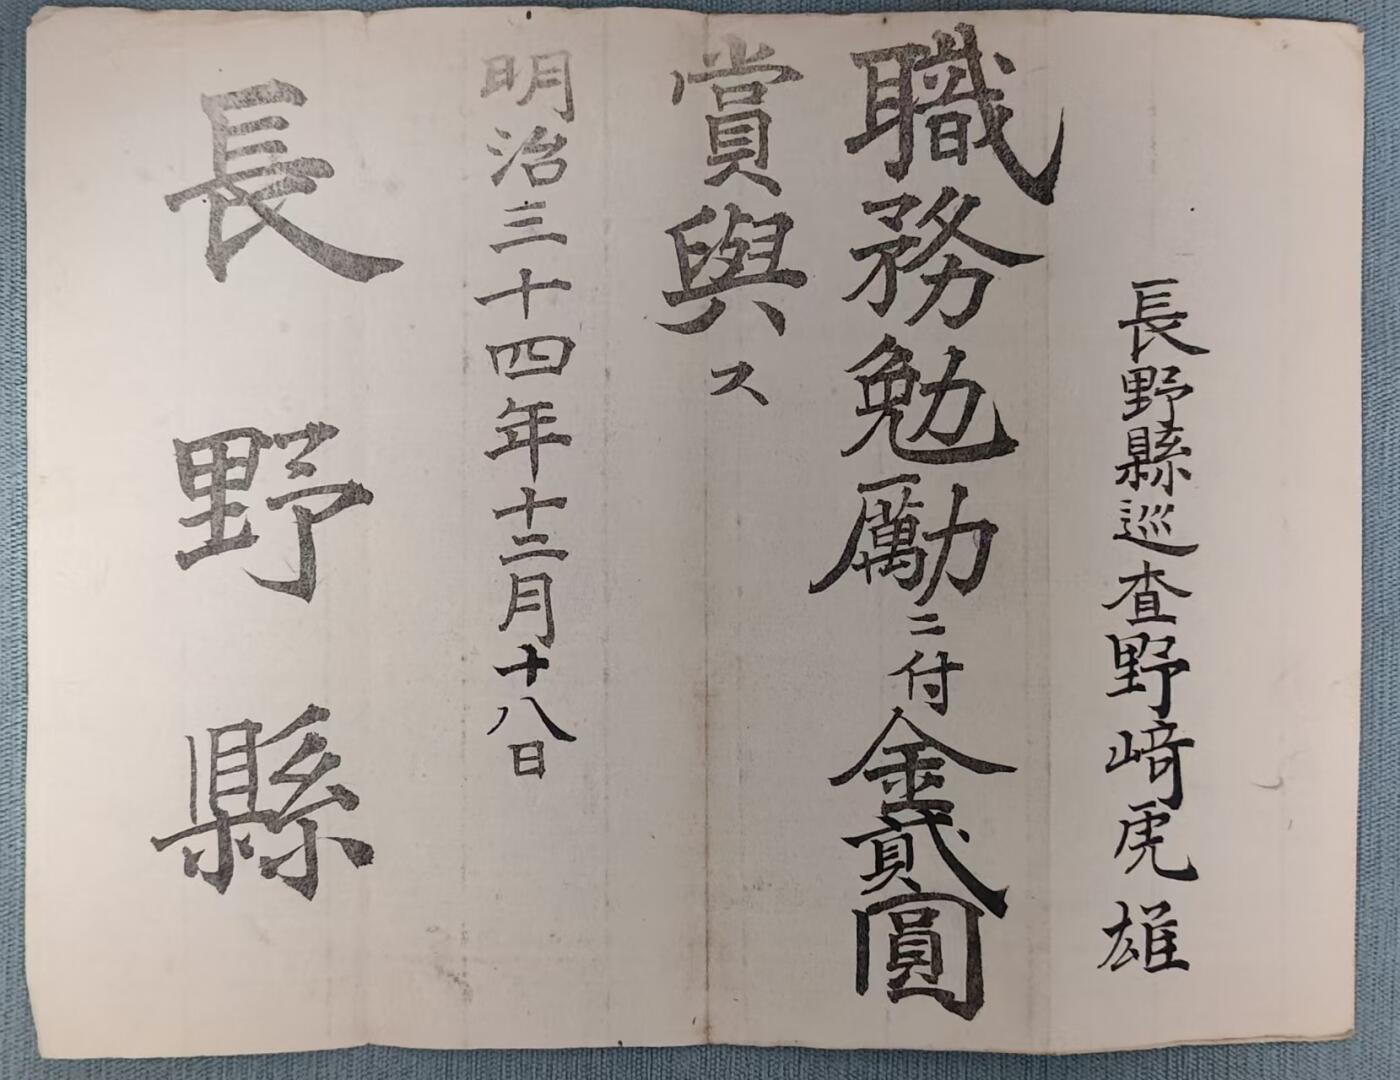 長野縣巡査野﨑虎雄
職務勉勵ニ付金貳圓
賞與ス
明治三十四年十二月十八日
長野縣